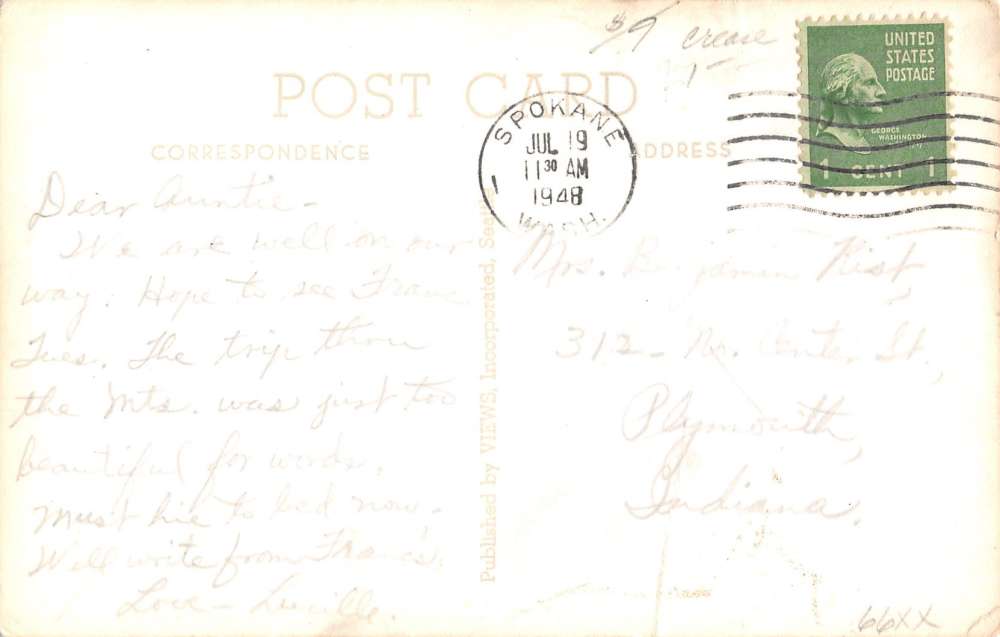 $9 crease
1-
UNITED
STATES
POSTAGE
GEORGE
WASHINGTON
1 CENT 1
POST CARD
SPOKANE
JUL 19
11 30 AM
1948
WASH.
1
CORRESPONDENCE
ADDRESS
Dear Auntie-
We are well on our
way. Hope to see Franc
Tues. The trip throu
the Mts. was just too
beautiful for words.
Must hie to bed now.
Will write from Franc's.
Love - Lucille.
Published by VIEWS, Incorporated, Seattle
Mrs. Benjamin Kist,
312- No. Center St.,
Plymouth,
Indiana.
66XX